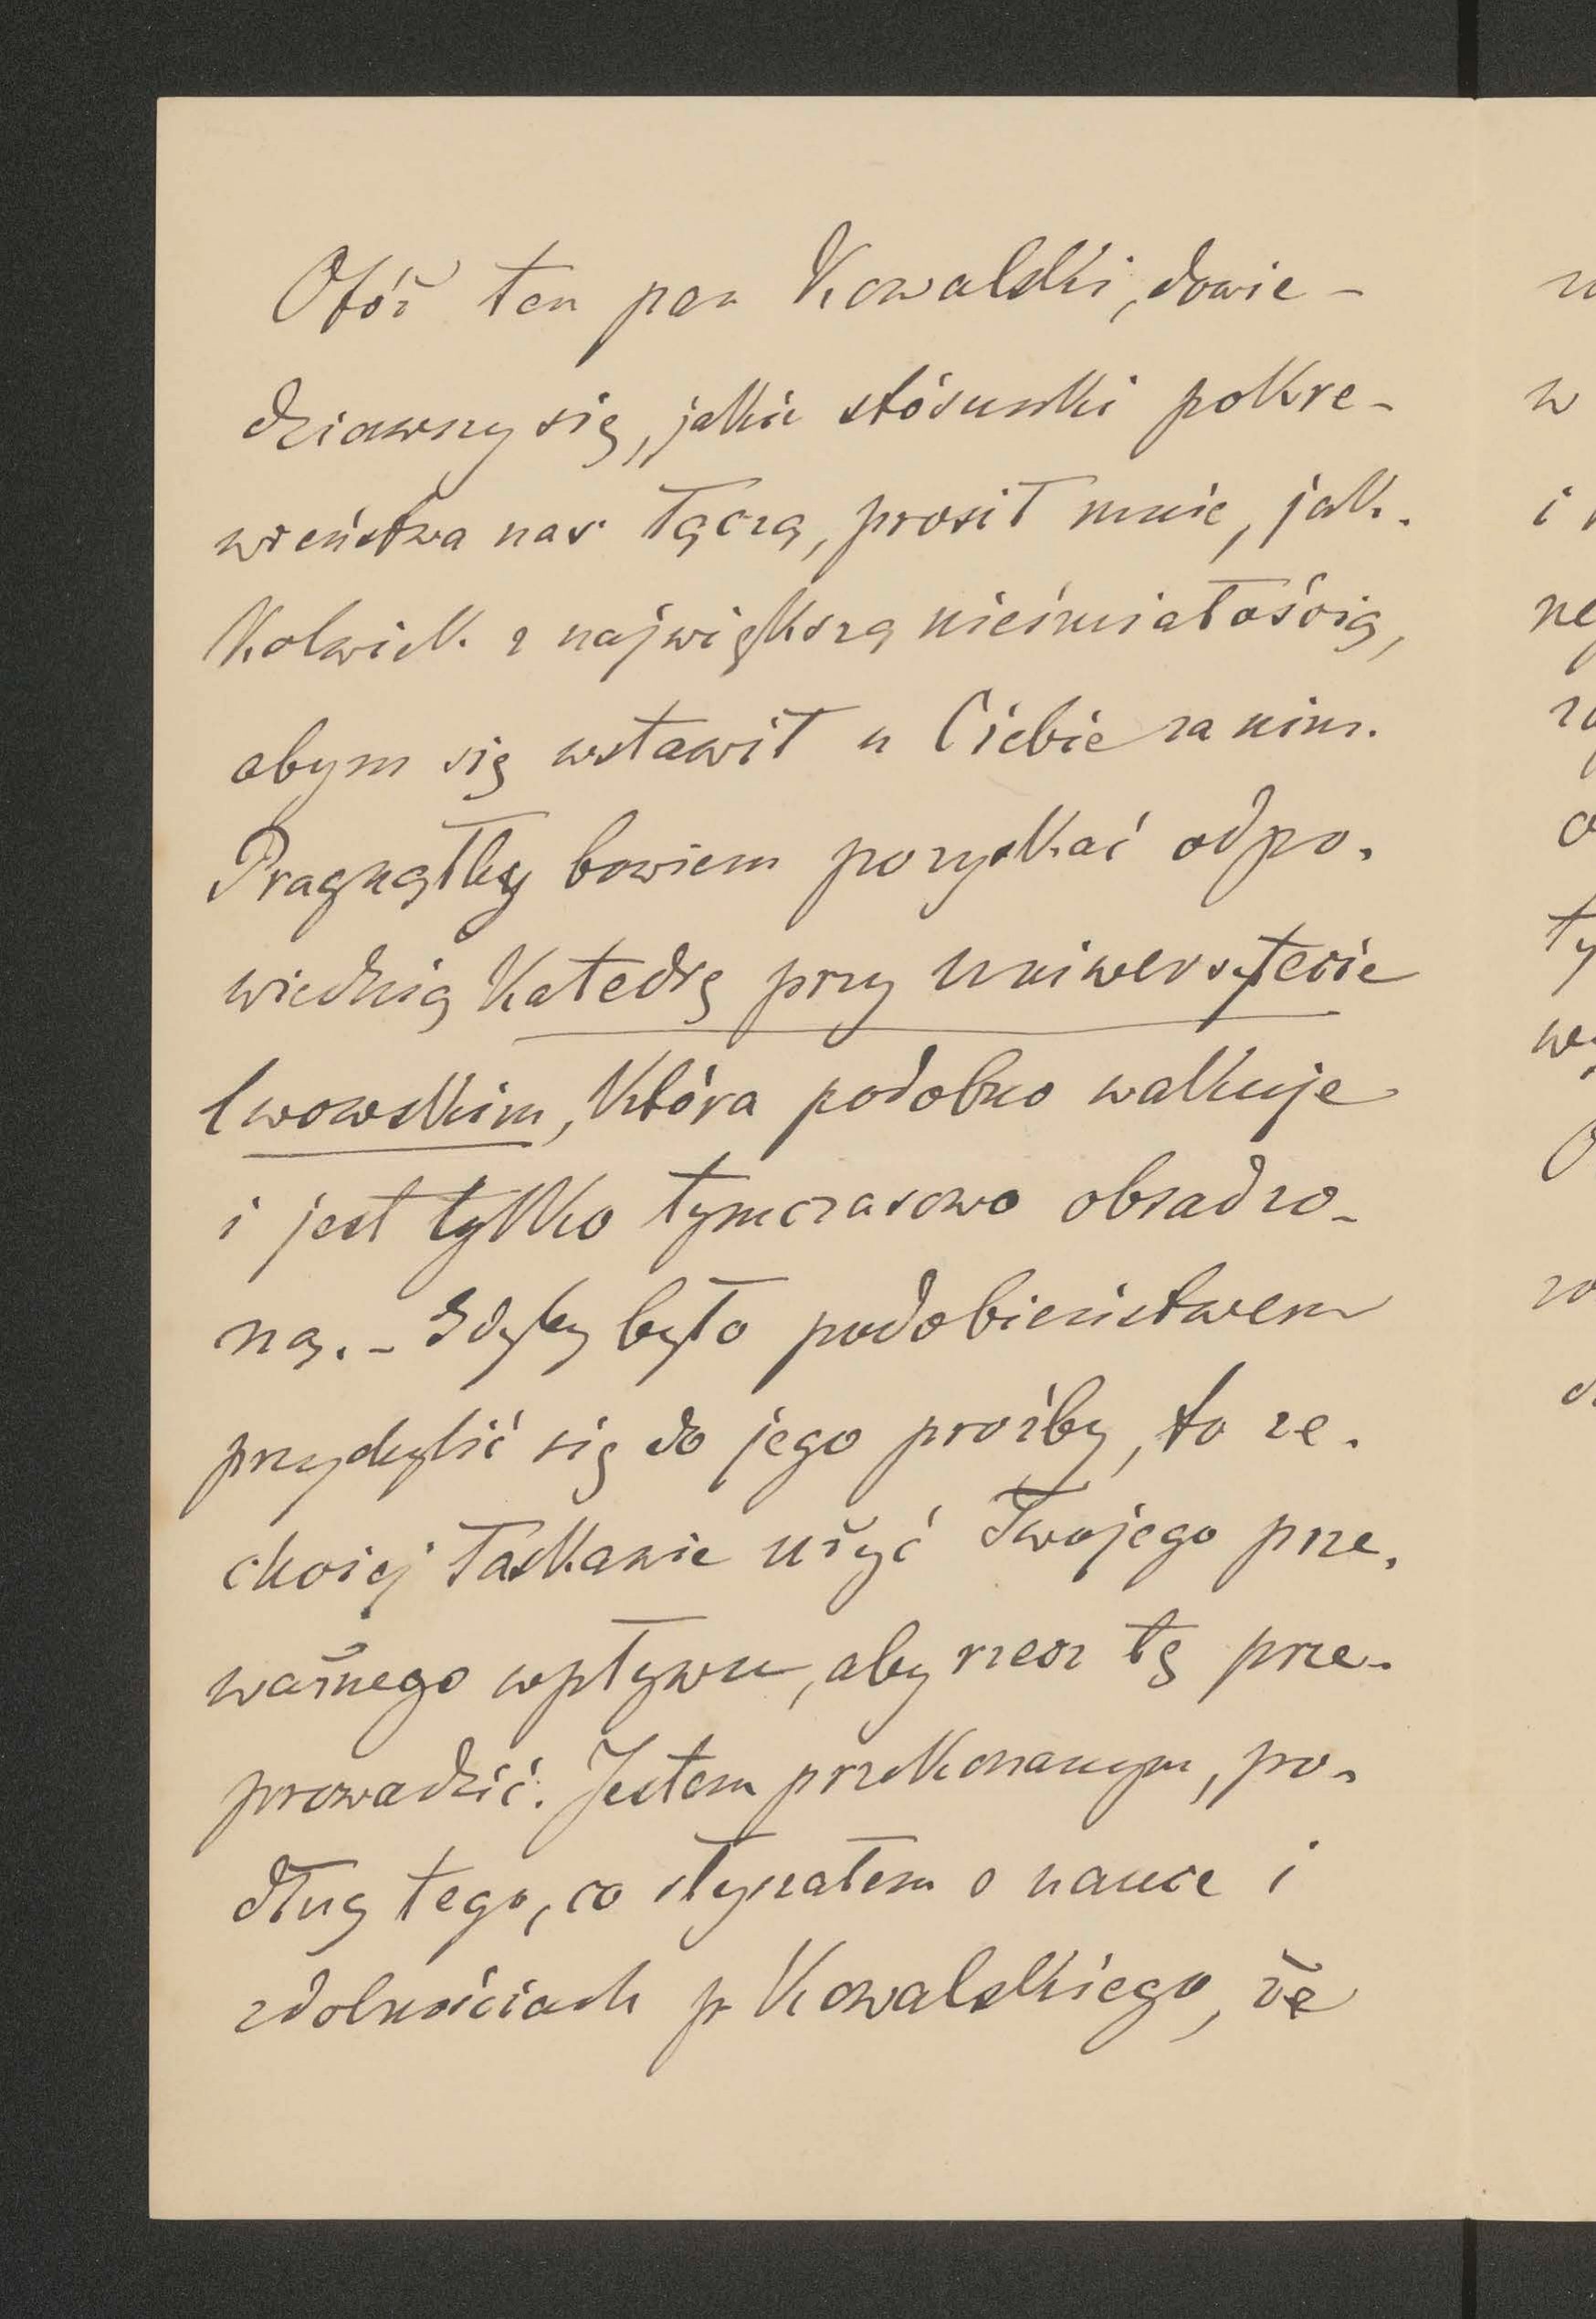 Otóż ten pan Kowalski, dowie-
dziawszy się, jakie stósunki pokre-
wieństwa nas łączą, prosił mnie, jak.
kolwiek z największą nieśmiałością,
abym się wstawił u Ciebie za nim.
Pragnąłby bowiem pozyskać odpo.
wiednią Katedrę przy uniwersytecie
lwowskim, która podobno wakuje
i jest tylko tymczasowo obsadzo-
ną. - Gdyby było podobieństwem
przychylić się do jego prośby, to ze.
chciej łaskawie użyć Twojego prze.
ważnego wpływu, aby rzecz tę prze-
prowadzić. Jestem przekonanym, po-
dług tego, co słyszałem o nauce i
zdolnościach p Kowalskiego, że